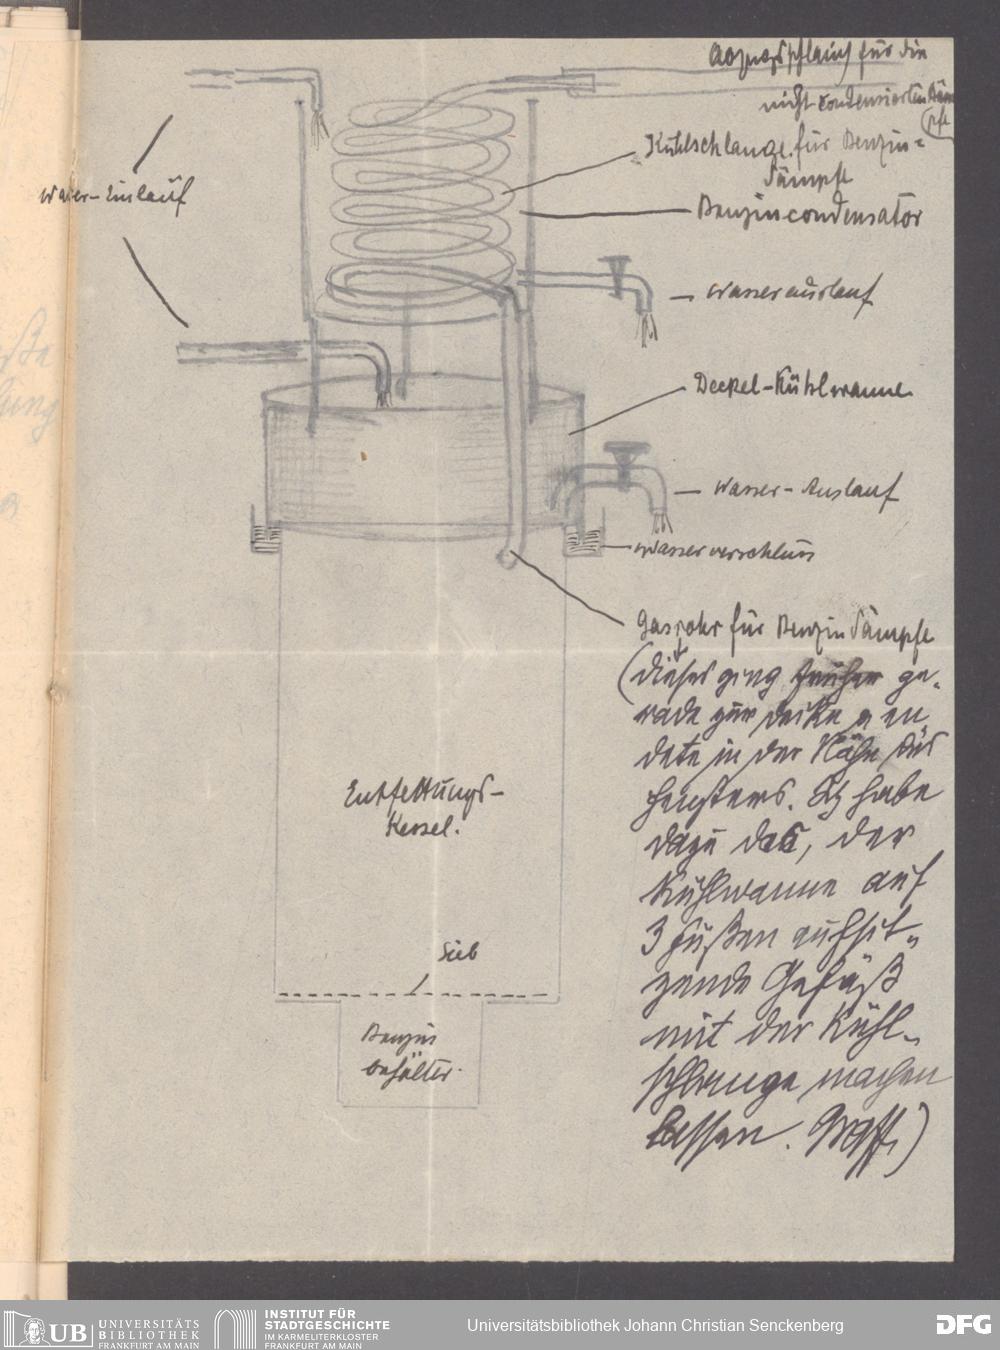 Abzugsschlauch für die
nicht condensierten Däm
pfe
Kühlschlange für Benzin-
Dämpfe
Wasser-Einlauf
Benzincondensator
Wasserauslauf
Deckel-Kühlwanne
Wasser-Auslauf
Wasserverschluss
Gasrohr für Benzin Dämpfe
(dieses ging früher ge-
rade zur Decke u en
dete in der Nähe des
Fensters. Ich habe
dazu das, der
Kühlwanne auf
3 Füßen aufsit-
zende Gefäß
mit der Kühl-
schlange machen
lassen.
Entfettungs-
Kessel.
Sieb
Benzin
behälter.
UB UNIVERSITÄTS
BIBLIOTHEK
FRANKFURT AM MAIN
INSTITUT FÜR
STADTGESCHICHTE
IM KARMELITERKLOSTER
FRANKFURT AM MAIN
Universitätsbibliothek Johann Christian Senckenberg
DFG